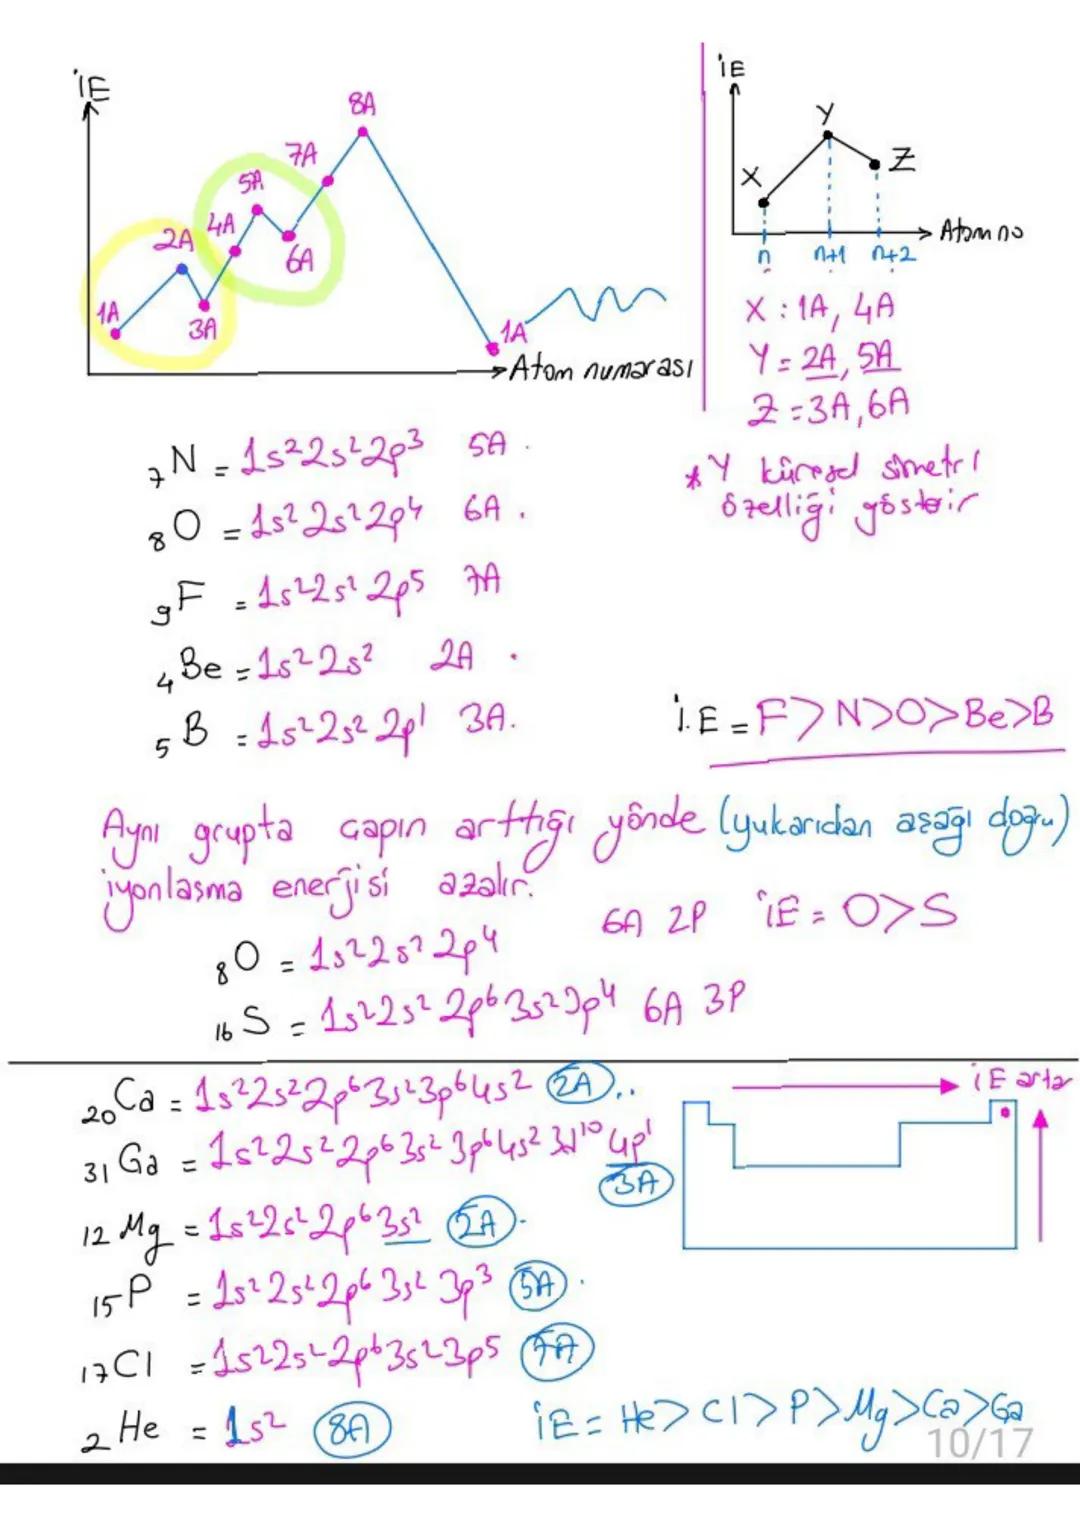 İE
8A
7A
5A
4A
2A
6A
1A
3A
1A
Atom numarası
İE
Y
X
Z
Atom no
n n+1 n+2
X : 1A, 4A
Y = 2A, 5A
Z = 3A, 6A
* Y küresel simetri
özelliği gösterir
₇N = 1s²2s²2p³ 5A .
₈O = 1s²2s²2p⁴ 6A .
₉F = 1s²2s²2p⁵ 7A
₄Be = 1s²2s² 2A .
₅B = 1s²2s²2p¹ 3A.
İ.E = F>N>O>Be>B
Aynı grupta çapın arttığı yönde (yukarıdan aşağı doğru)
iyonlaşma enerjisi azalır.
6A 2P İE = O>S
₈O = 1s²2s²2p⁴
₁₆S = 1s²2s²2p⁶3s²3p⁴ 6A 3P
₂₀Ca = 1s²2s²2p⁶3s²3p⁶4s² 2A ..
İE artar
₃₁Ga = 1s²2s²2p⁶3s²3p⁶4s²3d¹⁰4p¹
3A
₁₂Mg = 1s²2s²2p⁶3s² 2A .
₁₅P = 1s²2s²2p⁶3s²3p³ 5A .
₁₇Cl = 1s²2s²2p⁶3s²3p⁵ 7A
₂He = 1s² 8A
İE = He>Cl>P>Mg>Ca>Ga
10/17